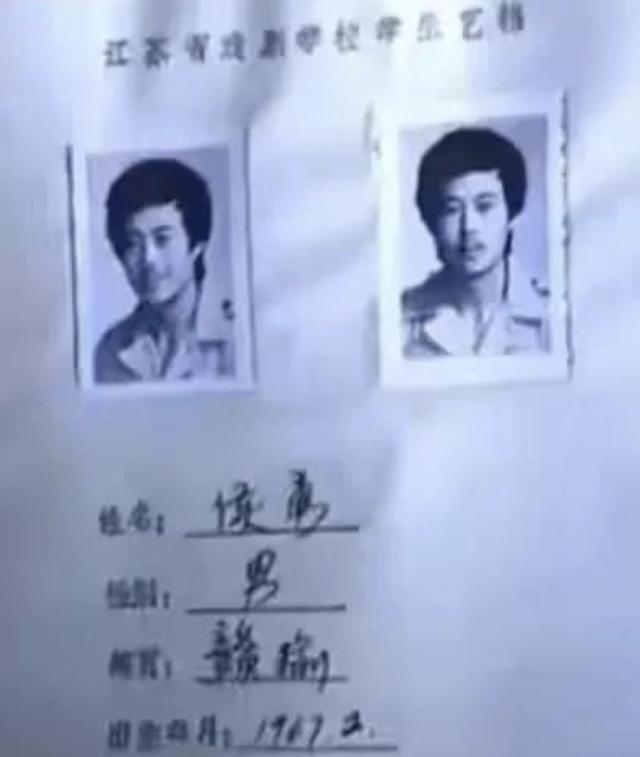 江苏省戏剧学校学生艺档
姓名：侯勇
性别：男
籍贯：赣榆
出生年月：1967.2.